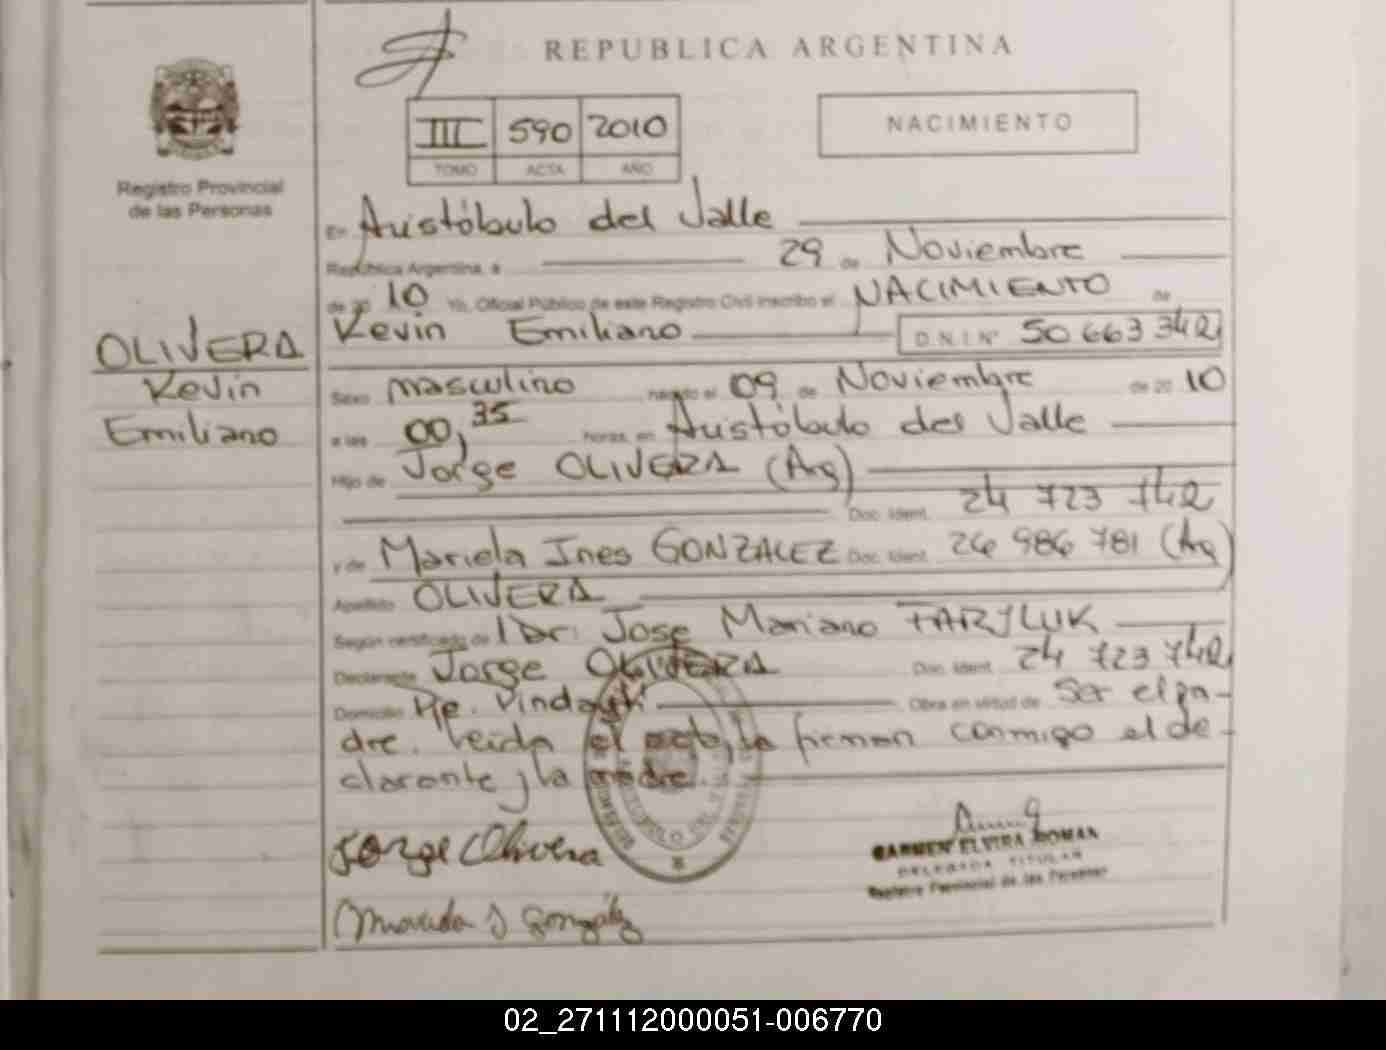 REPUBLICA ARGENTINA
III 590 2010
TOMO ACTA AÑO
NACIMIENTO
Registro Provincial
de las Personas
En Aristóbulo del Valle
República Argentina, a 29 de Noviembre
de 20 10 Yo, Oficial Público de este Registro Civil inscribo el NACIMIENTO de
Kevin Emiliano D.N.I.Nº 50 663 342
OLIVERA
Kevin
Emiliano
Sexo masculino nacido el 09 de Noviembre de 20 10
a las 00,35 horas, en Aristóbulo del Valle
Hijo de Jorge OLIVERA (Arg)
Doc. Ident. 24 723 742
y de Mariela Ines GONZALEZ Doc. Ident. 26 986 781 (Arg)
Apellido OLIVERA
Según certificado de Dr. Jose Mariano TARYLUK
Declarante Jorge OLIVERA Doc. Ident. 24 723 742
Domicilio Pje. Obra en virtud de Ser el pa-
dre. Leida el acta, la firman conmigo el de-
clarante y la madre.
Jorge Olivera
CARMEN ELVIRA ROMAN
DELEGADA TITULAR
Registro Provincial de las Personas
Mariela I González
02_271112000051-006770